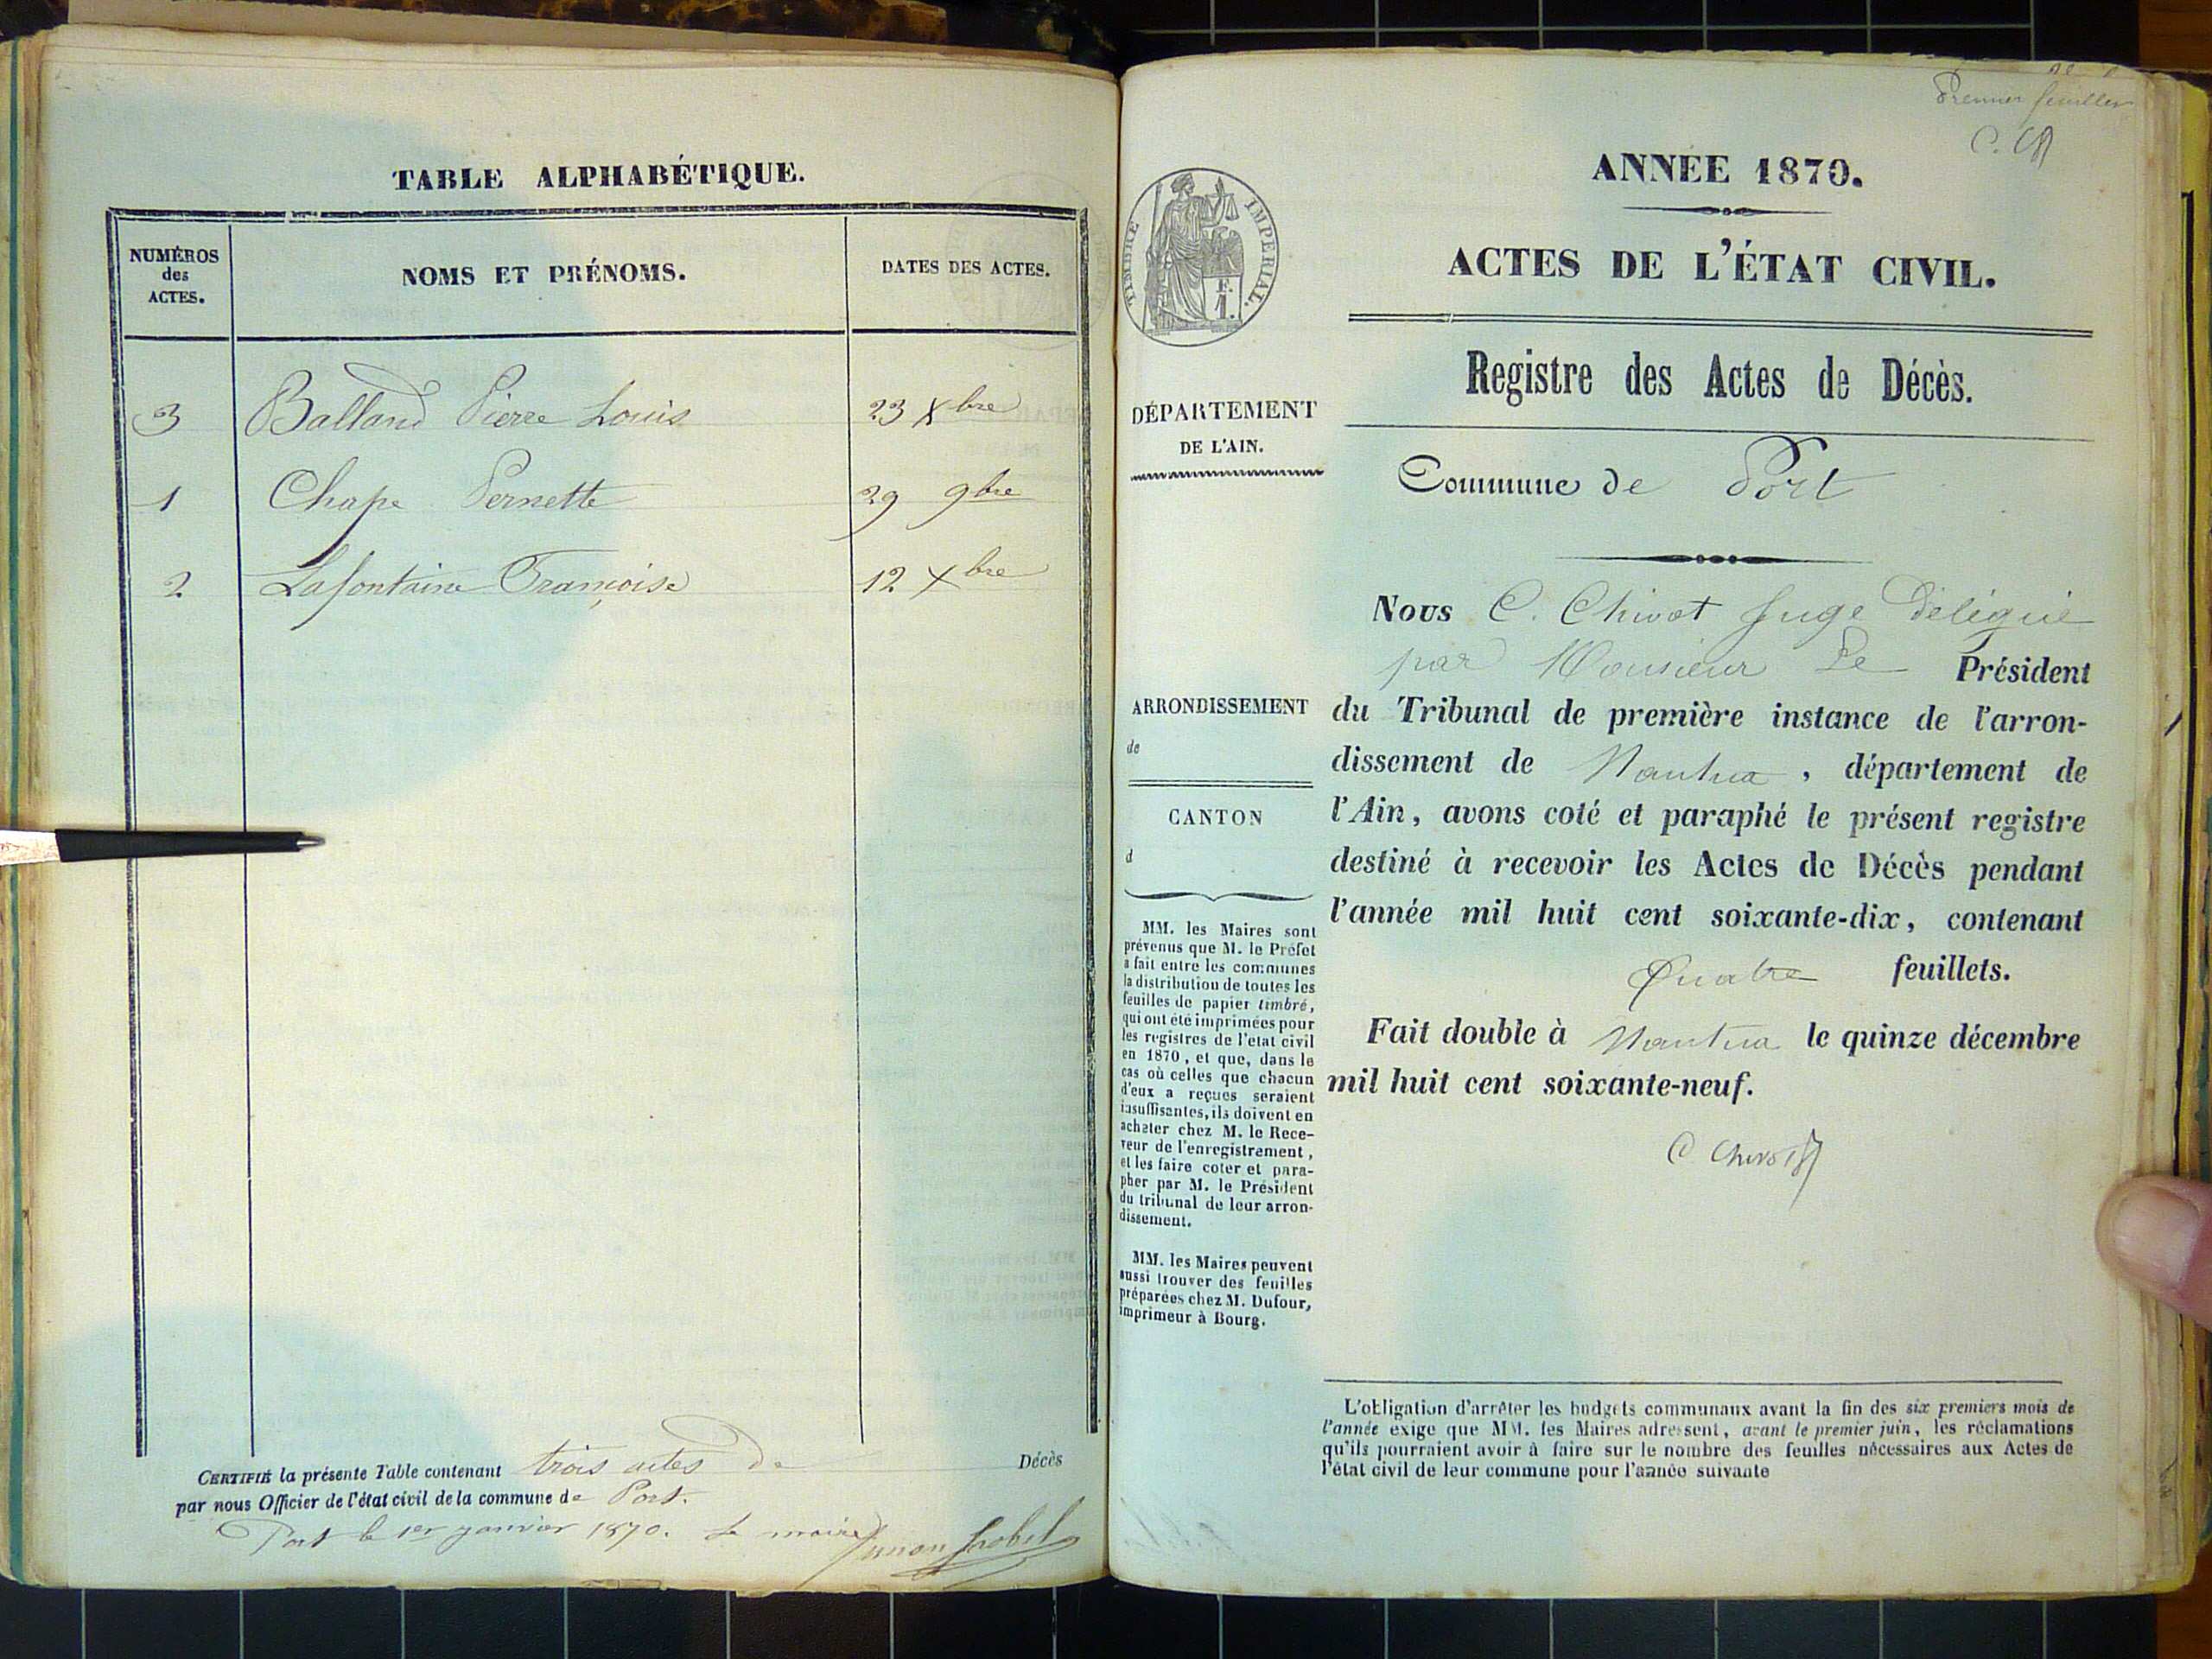 TABLE ALPHABÉTIQUE.
NUMÉROS
des
ACTES.
NOMS ET PRÉNOMS.
DATES DES ACTES.
3 Balland Pierre Louis 23 Xbre
1 Chape Pernette 29 9bre
2 Lafontaine Françoise 12 Xbre
CERTIFIÉ la présente Table contenant trois actes de Décès
par nous Officier de l'état civil de la commune de Port.
Port le 1er janvier 1870. Le maire
Premier feuillet
ANNÉE 1870.
TIMBRE IMPÉRIAL.
F.
1.
ACTES DE L'ÉTAT CIVIL.
Registre des Actes de Décès.
DÉPARTEMENT
DE L'AIN.
Commune de Port
Nous C. Chivot Juge Délégué
par Monsieur Le Président
du Tribunal de première instance de l'arron-
dissement de Nantua, département de
l'Ain, avons coté et paraphé le présent registre
destiné à recevoir les Actes de Décès pendant
l'année mil huit cent soixante-dix, contenant
Quatre feuillets.
Fait double à Nantua le quinze décembre
mil huit cent soixante-neuf.
C Chivot
ARRONDISSEMENT
de
CANTON
d
MM. les Maires sont
prévenus que M. le Préfet
a fait entre les communes
la distribution de toutes les
feuilles de papier timbré,
qui ont été imprimées pour
les registres de l'état civil
en 1870, et que, dans le
cas où celles que chacun
d'eux a reçues seraient
insuffisantes, ils doivent en
acheter chez M. le Rece-
veur de l'enregistrement,
et les faire coter et para-
pher par M. le Président
du tribunal de leur arron-
dissement.
MM. les Maires peuvent
aussi trouver des feuilles
préparées chez M. Dufour,
imprimeur à Bourg.
L'obligation d'arrêter les budgets communaux avant la fin des six premiers mois de
l'année exige que MM. les Maires adressent, avant le premier juin, les réclamations
qu'ils pourraient avoir à faire sur le nombre des feuilles nécessaires aux Actes de
l'état civil de leur commune pour l'année suivante